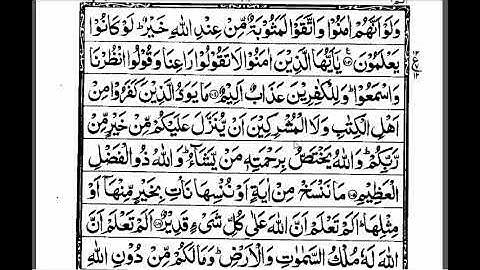 وَلَوْ اَنَّهُمْ اٰمَنُوْا وَاتَّقَوْا لَمَثُوْبَةٌ مِّنْ عِنْدِ اللّٰهِ خَيْرٌ ؕ لَوْ كَانُوْا
يَعْلَمُوْنَ ۝ يٰۤاَيُّهَا الَّذِيْنَ اٰمَنُوْا لَا تَقُوْلُوْا رَاعِنَا وَقُوْلُوا انْظُرْنَا
وَاسْمَعُوْا ؕ وَلِلْكٰفِرِيْنَ عَذَابٌ اَلِيْمٌ ۝ مَا يَوَدُّ الَّذِيْنَ كَفَرُوْا مِنْ
اَهْلِ الْكِتٰبِ وَلَا الْمُشْرِكِيْنَ اَنْ يُّنَزَّلَ عَلَيْكُمْ مِّنْ خَيْرٍ مِّنْ
رَّبِّكُمْ ؕ وَاللّٰهُ يَخْتَصُّ بِرَحْمَتِهٖ مَنْ يَّشَآءُ ؕ وَاللّٰهُ ذُو الْفَضْلِ
الْعَظِيْمِ ۝ مَا نَنْسَخْ مِنْ اٰيَةٍ اَوْ نُنْسِهَا نَاْتِ بِخَيْرٍ مِّنْهَاۤ اَوْ
مِثْلِهَا ؕ اَلَمْ تَعْلَمْ اَنَّ اللّٰهَ عَلٰى كُلِّ شَىْءٍ قَدِيْرٌ ۝ اَلَمْ تَعْلَمْ اَنَّ
اللّٰهَ لَهٗ مُلْكُ السَّمٰوٰتِ وَالْاَرْضِ ؕ وَمَا لَكُمْ مِّنْ دُوْنِ اللّٰهِ